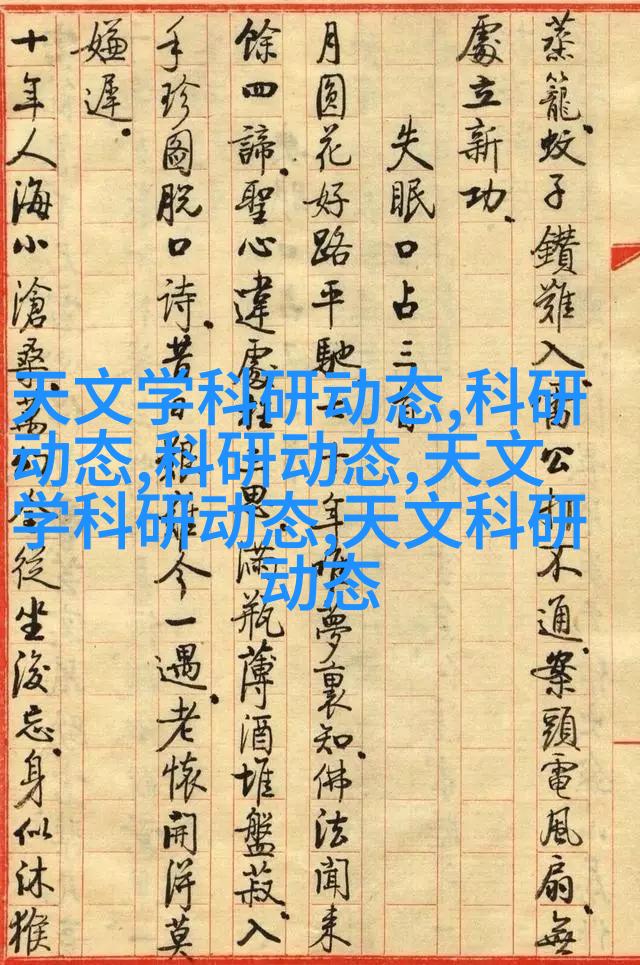 蒸籠。蚊子鑽難入。公不通。案頭電風扇。無
處立新功。
失眠口占三首
月圓花好路平馳。十年夢裏知。佛法聞来
餘四諦。聖心違處思。滿瓶薄酒堆盤菽。入
手珍圖脫口詩。昔今一遇。老懷開得莫
嫌遲。
十年人海小滄桑。萬幻全從坐後忘。身似沐猴
天文学科研动态,科研
动态,科研动态,天文
学科研动态,天文科研
动态